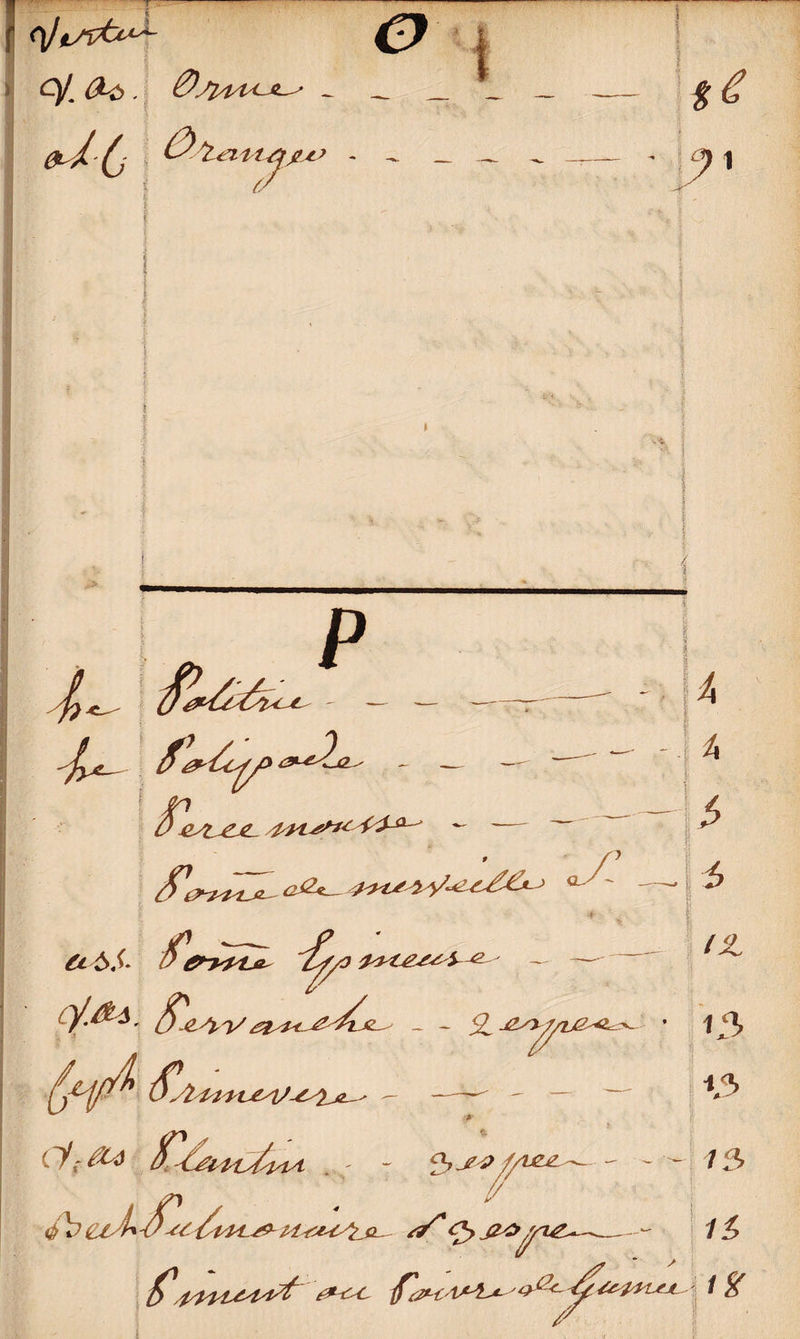 Vertu O
V. as. Orme 86
alf Orange 91
P
he Politric 4
he Polipode 4
Perce mousse 5
Pome de merveille 5
ass. Pome Epineuse 12
V. as. Pervanche 2 espece 13
Ceph Primevere 13
V. as Plantin 3 espee 13
Bech Pulmonaire 3 espe 15
Piment ou Poivre de Guinée 18